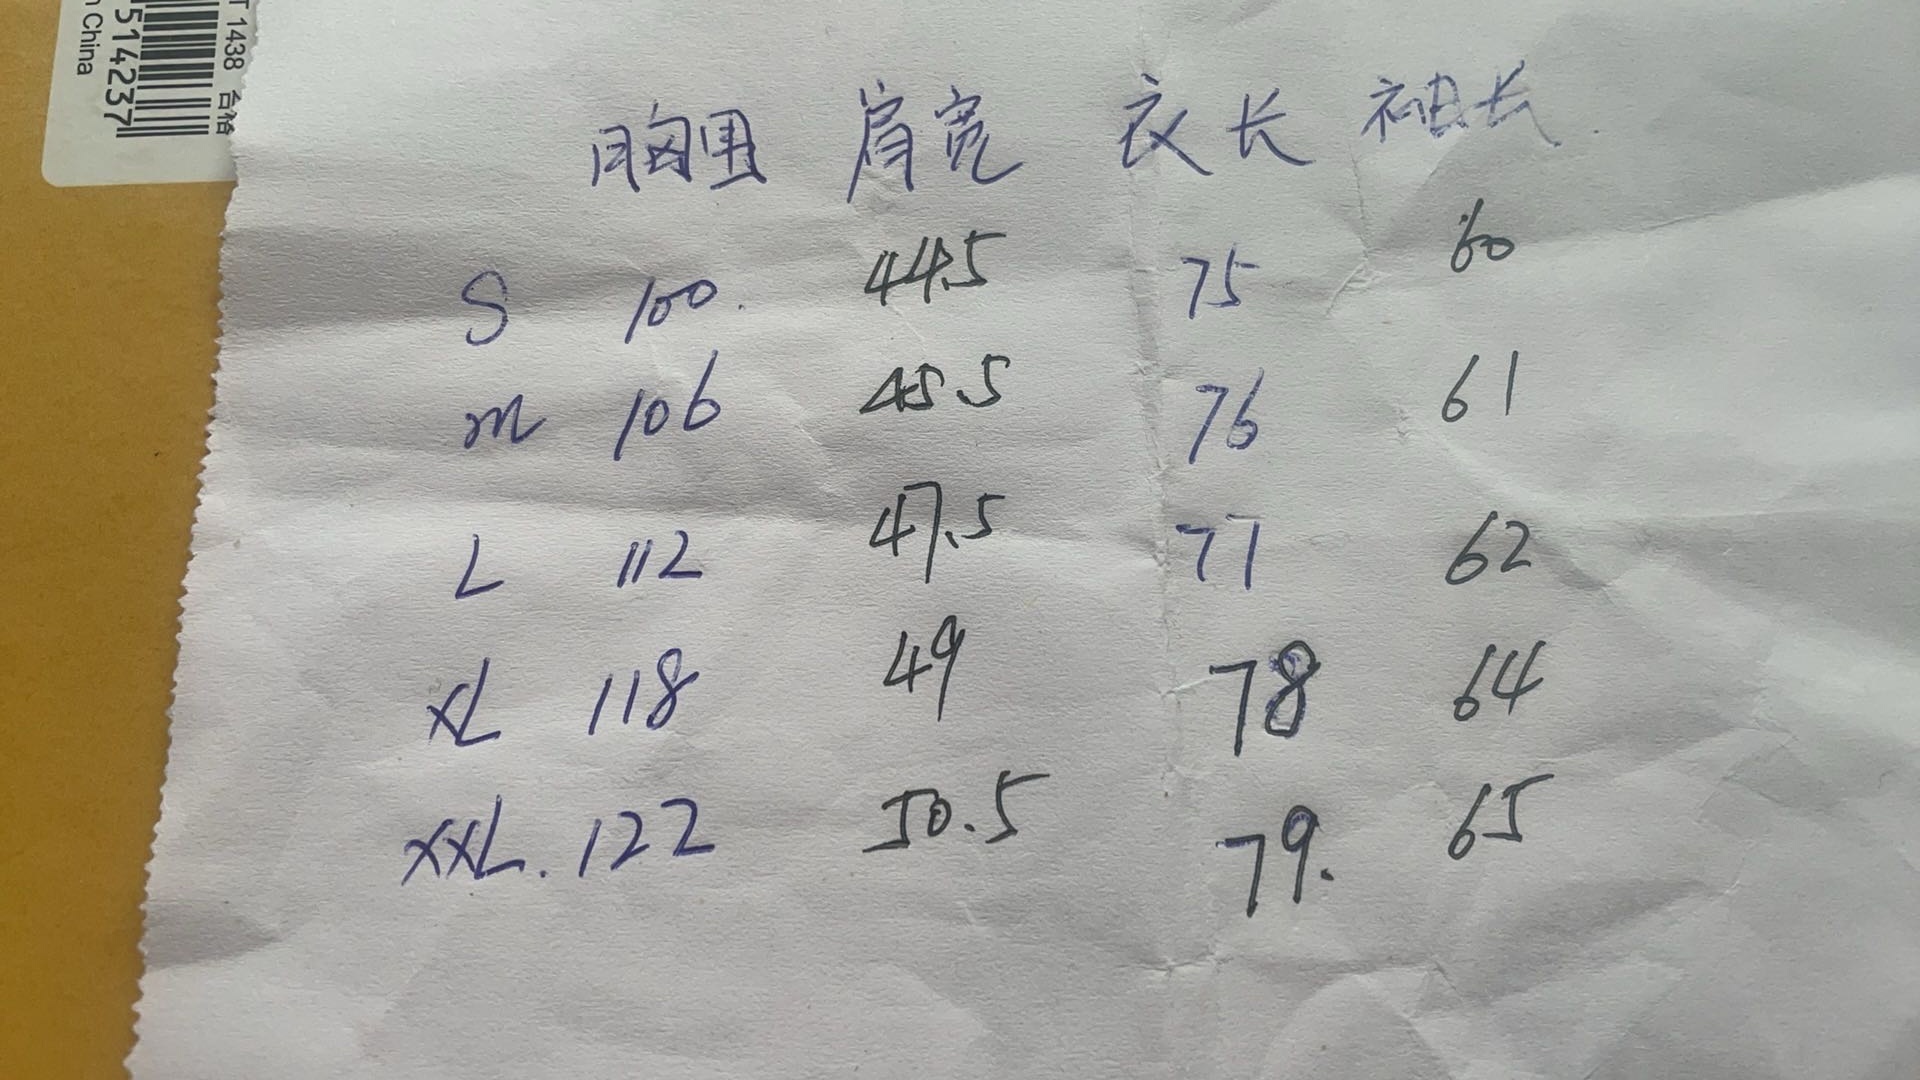 T 1438 合格
514237
China
胸围 肩宽 衣长 袖长
S 100. 44.5 75 60
M 106 45.5 76 61
L 112 47.5 77 62
XL 118 49 78 64
XXL. 122 50.5 79. 65